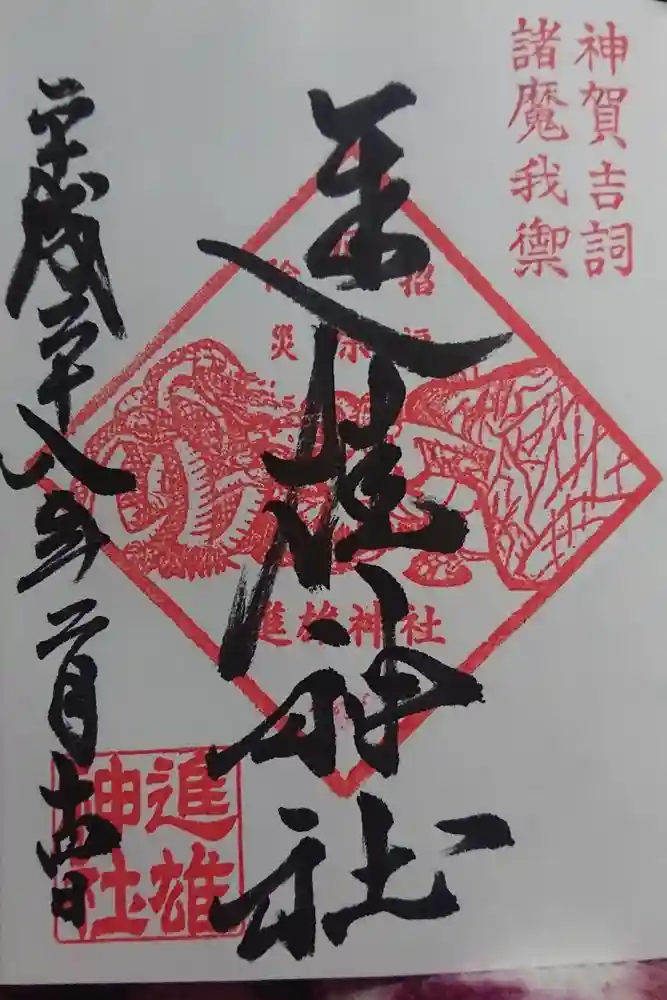 神賀吉詞
諸魔我禦
招福
除災
進雄神社
進雄神社
平成二十八年二月
進雄
神社